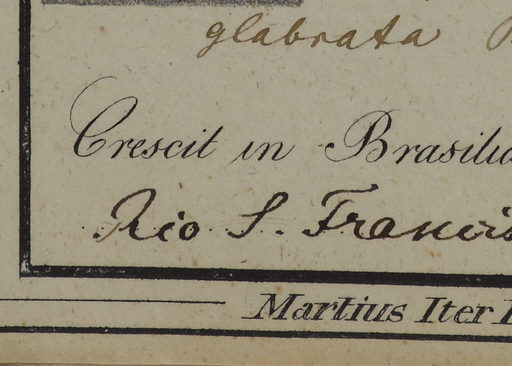 glabrata
Crescit in Brasilia
Rio S. Francis
Martius Iter